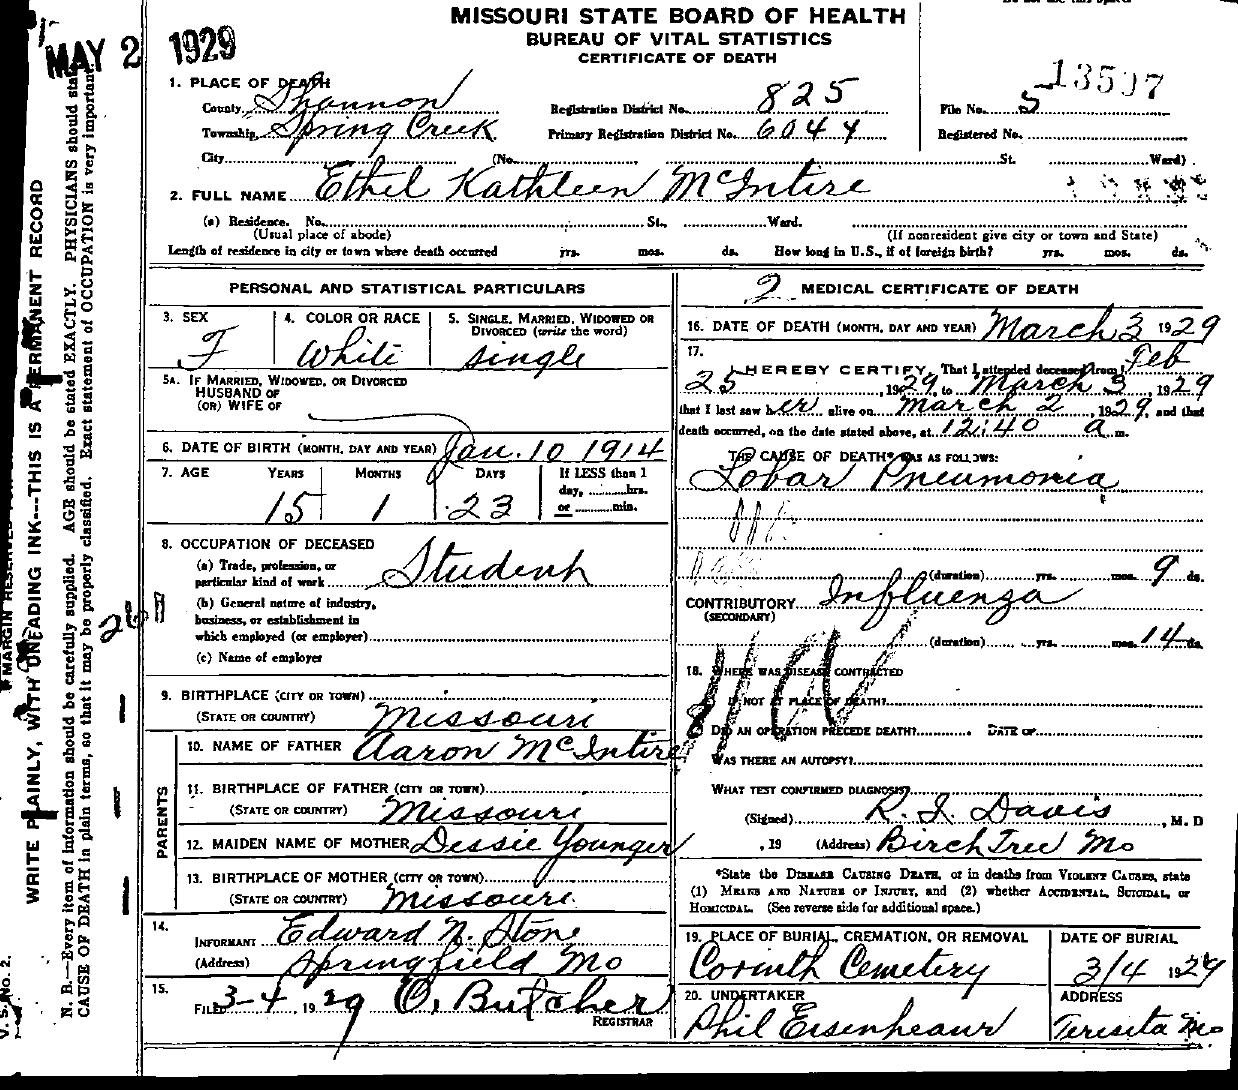 MAY 2 1929
MISSOURI STATE BOARD OF HEALTH
BUREAU OF VITAL STATISTICS
CERTIFICATE OF DEATH
1. PLACE OF DEATH
County Shannon Registration District No. 825 File No. 5 13597
Township Spring Creek Primary Registration District No. 6044 Registered No.
City (No. St. Ward)
2. FULL NAME Ethel Kathleen McIntire
(a) Residence. No. St., Ward.
(Usual place of abode) (If nonresident give city or town and State)
Length of residence in city or town where death occurred yrs. mos. ds. How long in U.S., if of foreign birth? yrs. mos. ds.
PERSONAL AND STATISTICAL PARTICULARS
3. SEX 4. COLOR OR RACE 5. SINGLE, MARRIED, WIDOWED OR
DIVORCED (write the word)
F White single
5A. IF MARRIED, WIDOWED, OR DIVORCED
HUSBAND OF
(OR) WIFE OF
6. DATE OF BIRTH (MONTH, DAY AND YEAR) Jan. 10 1914
7. AGE YEARS MONTHS DAYS If LESS than 1
day, hrs.
15 1 23 or min.
8. OCCUPATION OF DECEASED
(a) Trade, profession, or
particular kind of work Student
(b) General nature of industry,
business, or establishment in
which employed (or employer)
(c) Name of employer
9. BIRTHPLACE (CITY OR TOWN)
(STATE OR COUNTRY) Missouri
PARENTS
10. NAME OF FATHER Aaron McIntire
11. BIRTHPLACE OF FATHER (CITY OR TOWN)
(STATE OR COUNTRY) Missouri
12. MAIDEN NAME OF MOTHER Dessie Younger
13. BIRTHPLACE OF MOTHER (CITY OR TOWN)
(STATE OR COUNTRY) Missouri
14. INFORMANT Edward N. Stone
(Address) Springfield Mo
15. FILED 3-4, 1929 O. Butcher
REGISTRAR
2 MEDICAL CERTIFICATE OF DEATH
16. DATE OF DEATH (MONTH, DAY AND YEAR) March 3 1929
17.
I HEREBY CERTIFY, That I attended deceased from Feb
25, 1929, to March 3, 1929
that I last saw her alive on March 2, 1929, and that
death occurred, on the date stated above, at 12:40 a m.
THE CAUSE OF DEATH* WAS AS FOLLOWS:
Lobar Pneumonia
(duration) yrs. mos. 9 ds.
CONTRIBUTORY Influenza
(SECONDARY)
(duration) yrs. mos. 14 ds.
18. WHERE WAS DISEASE CONTRACTED
IF NOT AT PLACE OF DEATH?
DID AN OPERATION PRECEDE DEATH? DATE OF
WAS THERE AN AUTOPSY?
WHAT TEST CONFIRMED DIAGNOSIS?
(Signed) R. I. Davis, M. D
, 19 (Address) Birch Tree Mo
*State the DISEASE CAUSING DEATH, or in deaths from VIOLENT CAUSES, state
(1) MEANS AND NATURE OF INJURY, and (2) whether ACCIDENTAL, SUICIDAL, or
HOMICIDAL. (See reverse side for additional space.)
19. PLACE OF BURIAL, CREMATION, OR REMOVAL DATE OF BURIAL
Corinth Cemetery 3/4 1929
20. UNDERTAKER ADDRESS
Phil Eisenheaur Teresita Mo
WRITE PLAINLY, WITH UNFADING INK---THIS IS A PERMANENT RECORD
N. B.—Every item of information should be carefully supplied. AGE should be stated EXACTLY. PHYSICIANS should state
CAUSE OF DEATH in plain terms, so that it may be properly classified. Exact statement of OCCUPATION is very important.
MARGIN RESERVED
V. S. No. 2.